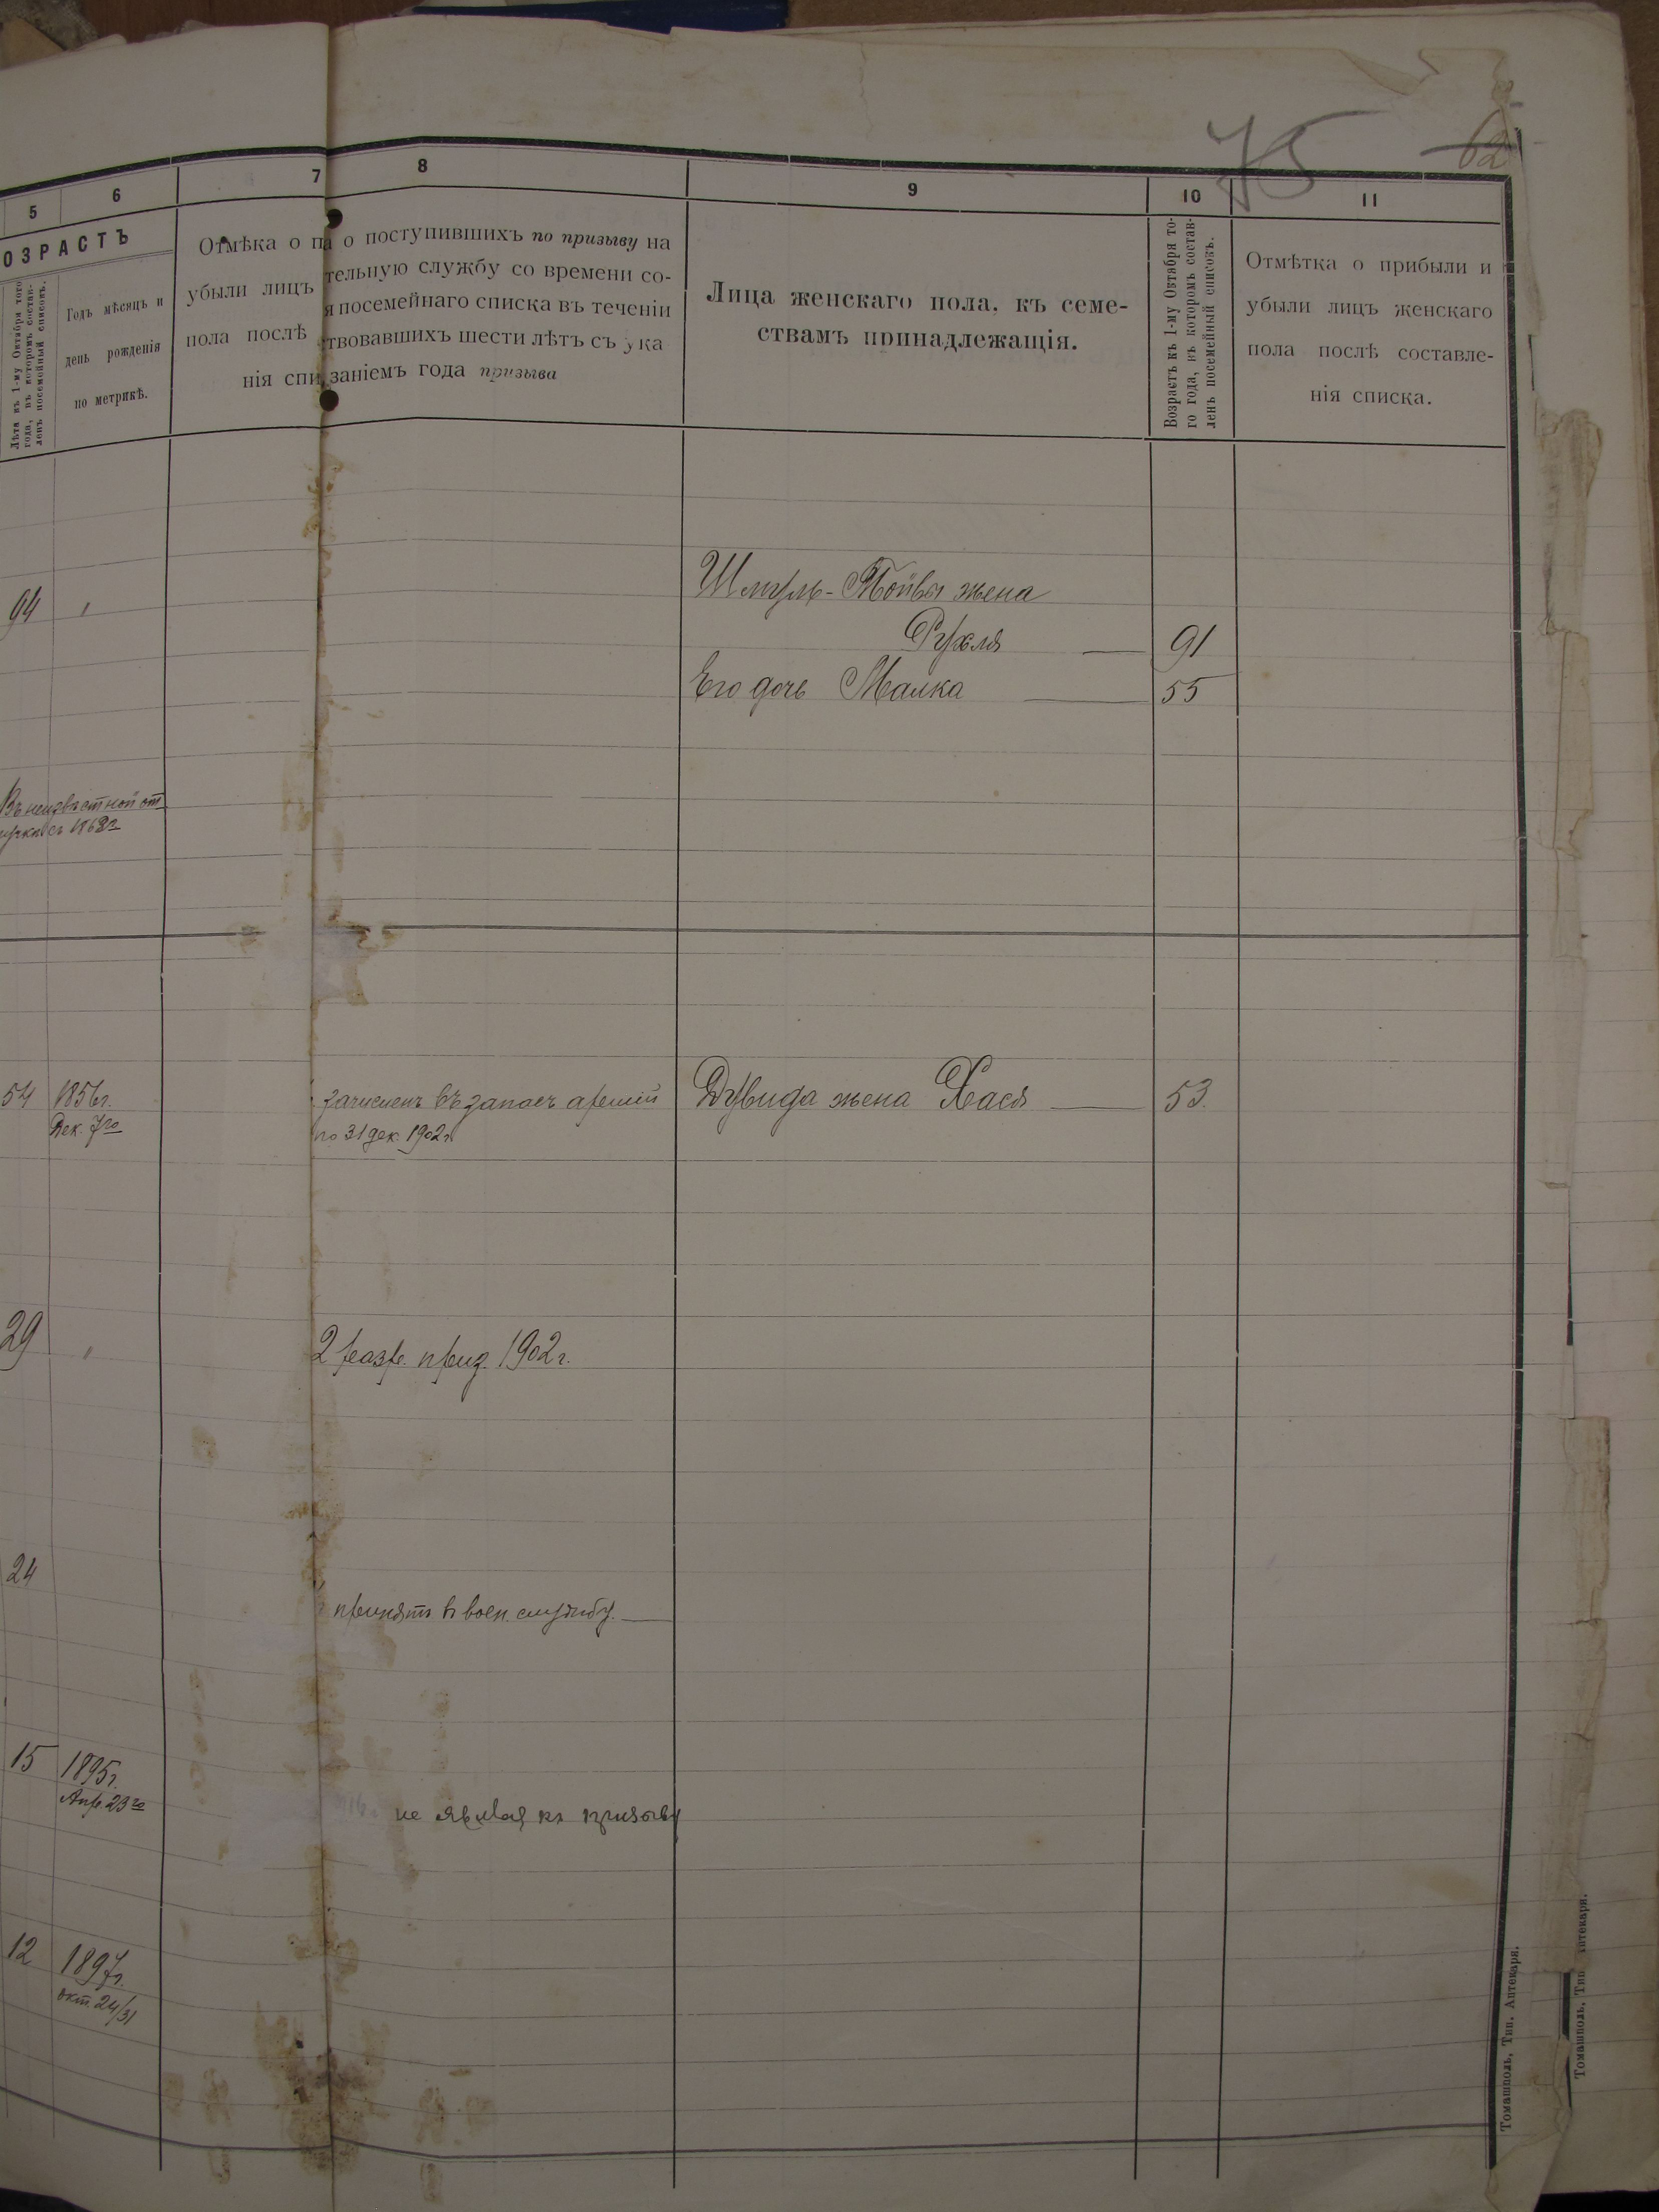 75
62
5
6
7
8
9
10
11
ОЗРАСТЪ
Лѣта къ 1-му Октября того
года, въ которомъ состав-
ленъ посемейный списокъ.
Годъ мѣсяцъ и
день рожденія
по метрикѣ.
Отмѣка о п
убыли лицъ
пола послѣ
нія спи
о поступившихъ по призыву на
тельную службу со времени со-
я посемейнаго списка въ теченіи
твовавшихъ шести лѣтъ съ ука
заніемъ года призыва
Лица женскаго пола, къ семе-
ствамъ принадлежащія.
Возрастъ къ 1-му Октября то-
го года, въ которомъ состав-
ленъ посемейный списокъ.
Отмѣтка о прибыли и
убыли лицъ женскаго
пола послѣ составле-
нія списка.
94
Шмуль-Тойвы жена
Рухля — 91
Его дочь Малка — 55
Въ неизвѣстной от
съ 1868г
54 1856г.
Дек. 7го
зачисленъ въ запасъ арміи
по 31 дек. 1902г
Дувида жена Хася — 53.
29
2 разр. приз. 1902г.
24
принятъ в воен. службу. —
15 1895г.
Апр. 23го
не явился къ призыву
12 1897г.
окт. 24/31
Томашполь, Тип. Аптекаря.
Томашполь, Тип аптекаря.